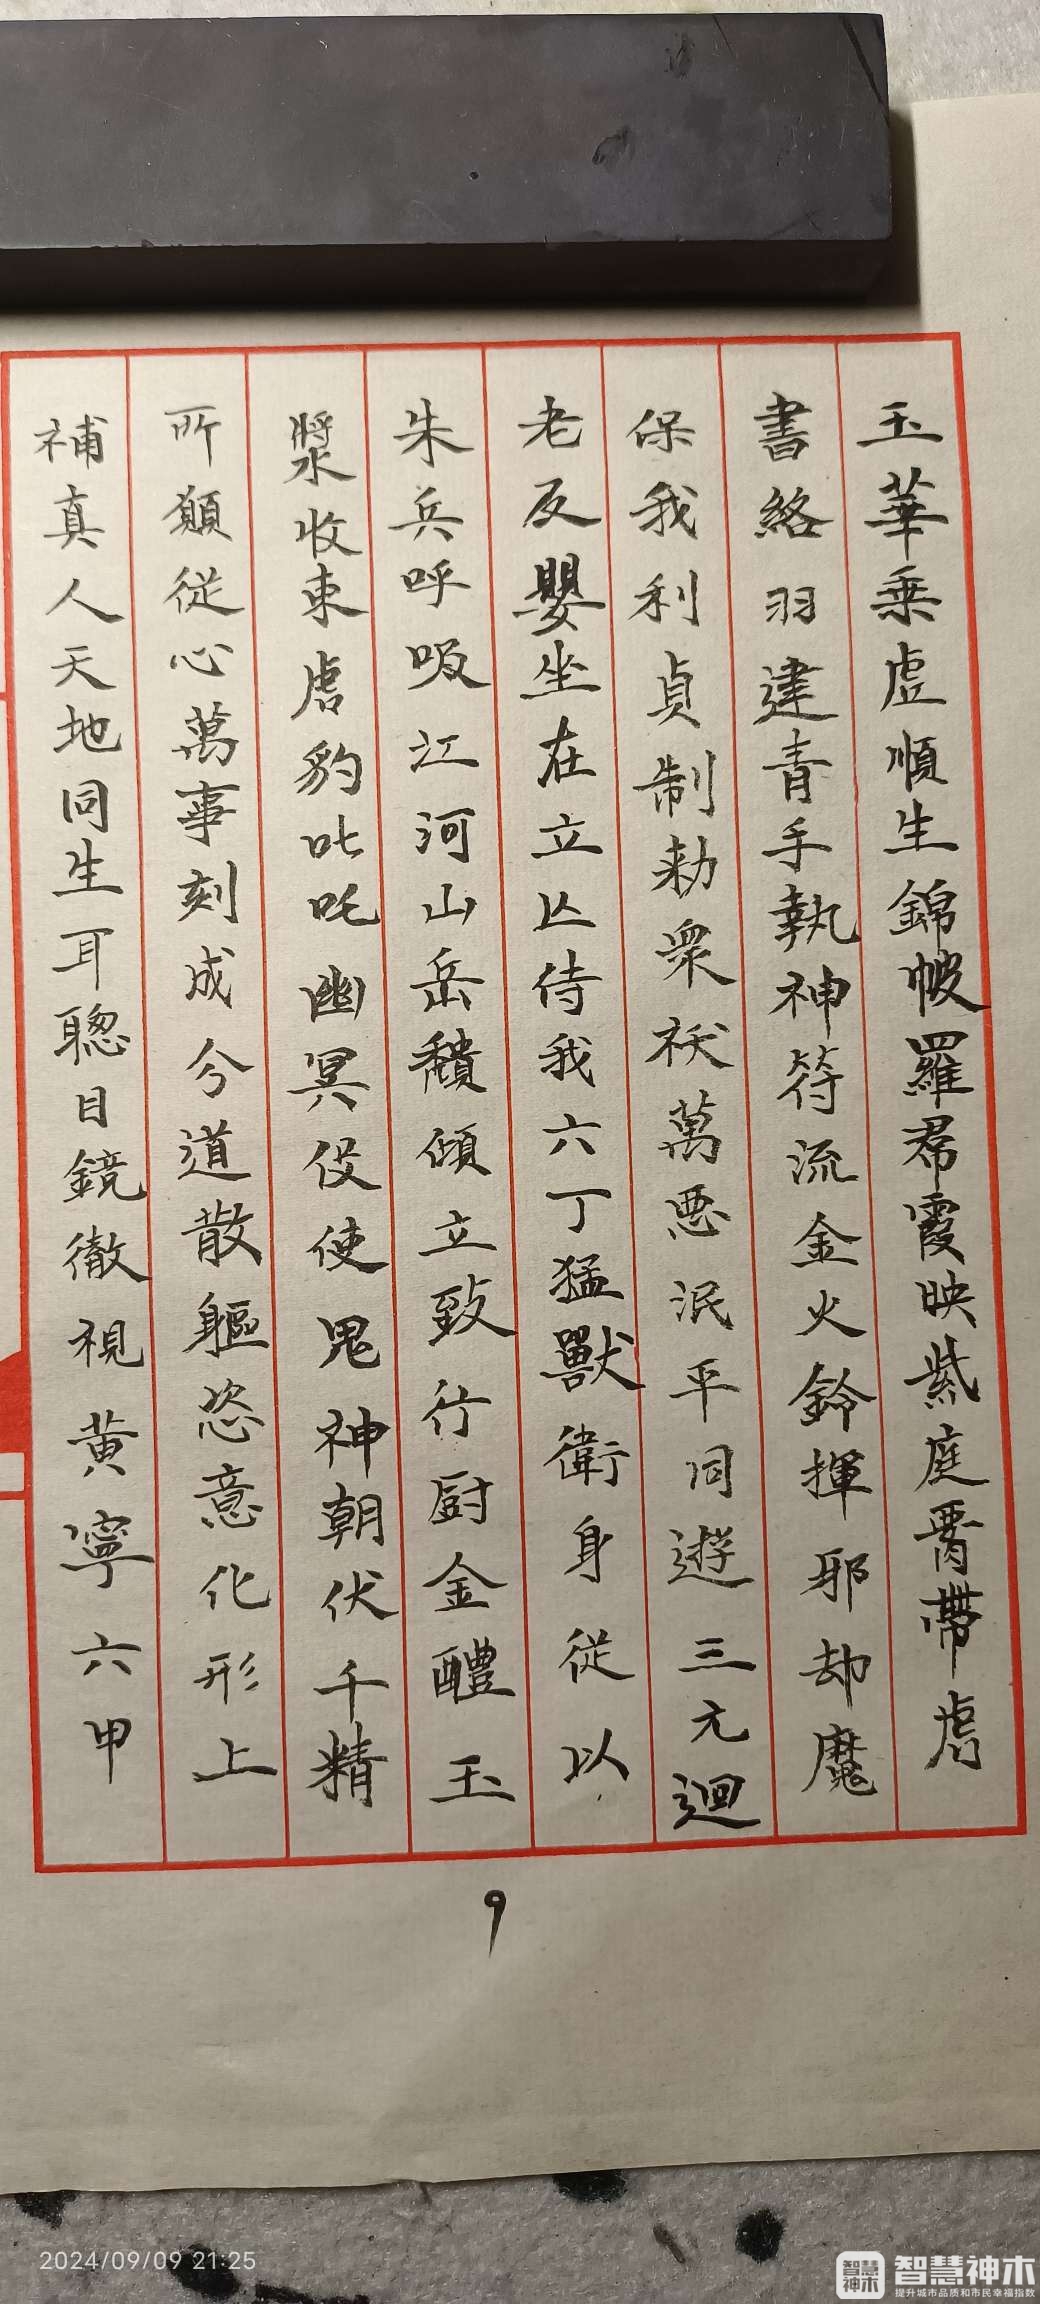 玉華乗虚順生錦帔羅帬霞映紫庭腎帶虎
書絡羽建青手執神符流金火鈴揮邪劫魔
保我利貞制勑衆祅萬恶泯平同遊三元迴
老反嬰坐在立亾侍我六丁猛獸衛身従以
朱兵呼吸江河山岳穨傾立致行厨金醴玉
漿收束虎豹叱吒幽冥伇使鬼神朝伏千精
所願従心萬事刻成兮道散軀恣意化形上
補真人天地同生耳聰目鏡徹視黄寧六甲
9
2024/09/09 21:25
智慧神木
智慧神木
提升城市品质和市民幸福指数